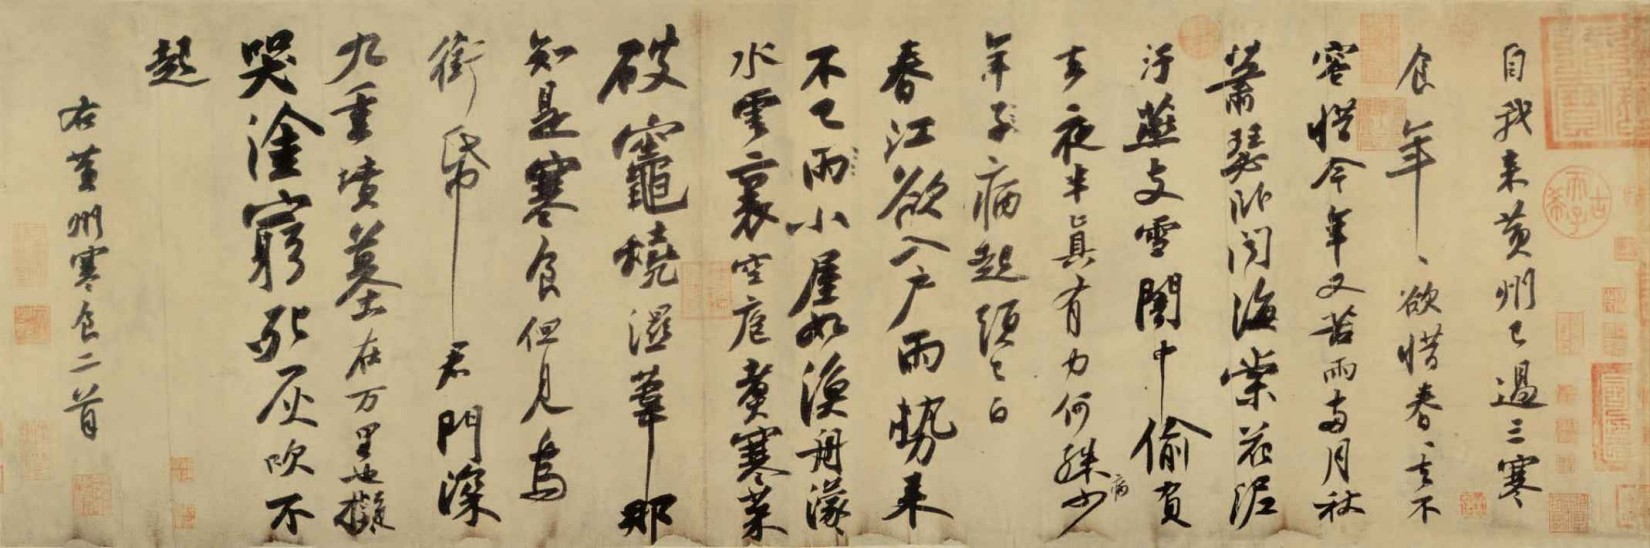 古希天子
自我来黄州已過三寒
食年〻欲惜春〻去不
容惜今年又苦雨兩月秋
蕭瑟卧聞海棠花泥
汙燕支雪闇中偷負
去夜半真有力何殊少病
年子病起頭已白
春江欲入户雨勢来
不已雨小屋如漁舟濛〻
水雲裏空庖煑寒菜
破竈燒濕葦那
知是寒食但見烏
銜帋君門深
九重墳墓在万里也擬
哭塗窮死灰吹不
起
右黄州寒食二首